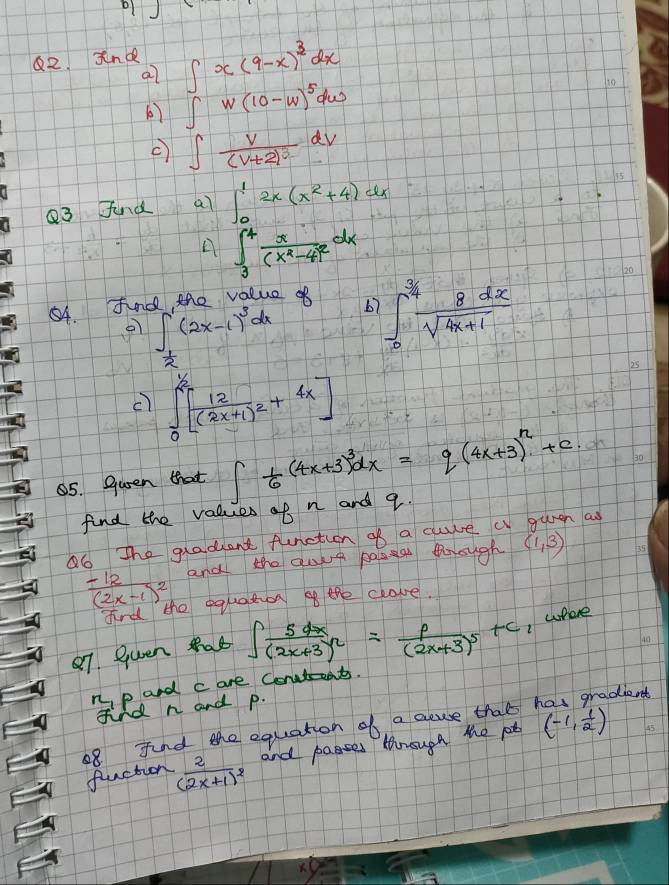 b) ∫ (
Q2. Find
a) ∫ x (9-x)³ dx
b) ∫ w (10-w)⁵ dw
c) ∫ v/(v+2)³ dv
Q3 Find a) ∫₀¹ 2x (x²+4) dx
∫₃⁴ x/(x²-4)² dx
Q4. Find the value of
a) ∫_{1/2}^{1} (2x-1)³ dx b) ∫₀^{3/4} 8 dx/√(4x+1)
c) ∫₀^{1/2} [12/(2x+1)² + 4x]
Q5. Given that ∫ 1/6 (4x+3)³ dx = q (4x+3)ⁿ + c.
find the values of n and q.
Q6 The gradient function of a curve is given as
-12/(2x-1)² and the curve passes through (1,3)
Find the equation of the curve.
Q7. Given that ∫ 5 dx/(2x+3)ⁿ = p/(2x+3)⁵ + c, where
n, p and c are constants.
Find n and p.
Q8 Find the equation of a curve that has gradient
function 2/(2x+1)² and passes through the pt (-1, 1/2)